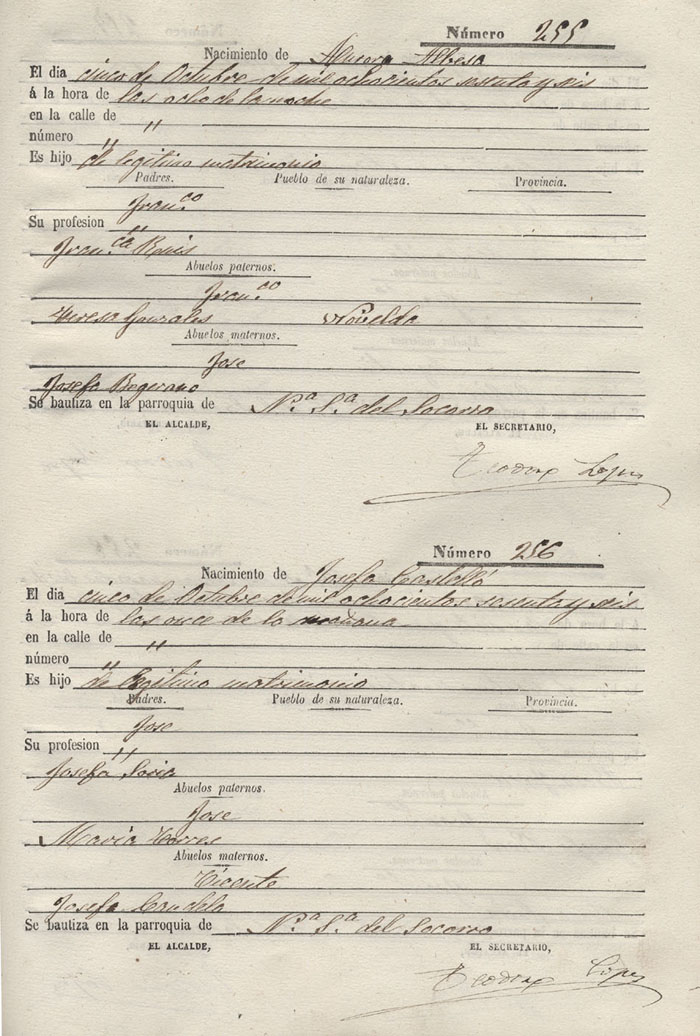 Número 255
Nacimiento de Aurora Albesa
El dia cinco de Octubre de mil ochocientos sesenta y seis
á la hora de las ocho de la noche
en la calle de "
número "
Es hijo de legitimo matrimonio
Padres. Pueblo de su naturaleza. Provincia.
Fran.co
Su profesion "
Fran.ca Ruis
Abuelos paternos.
Fran.co
Teresa Gonzales Novelda
Abuelos maternos.
Jose
Josefa
Se bautiza en la parroquia de N.a S.a del Socorro
EL ALCALDE, EL SECRETARIO,
Teodoro Lopez
Número 256
Nacimiento de Josefa Castelló
El dia cinco de Octubre de mil ochocientos sesenta y seis
á la hora de las once de la mañana
en la calle de "
número "
Es hijo de legitimo matrimonio
Padres. Pueblo de su naturaleza. Provincia.
Jose
Su profesion "
Josefa Soria
Abuelos paternos.
Jose
Maria Torres
Abuelos maternos.
Vicente
Josefa Candela
Se bautiza en la parroquia de N.a S.a del Socorro
EL ALCALDE, EL SECRETARIO,
Teodoro Lopez